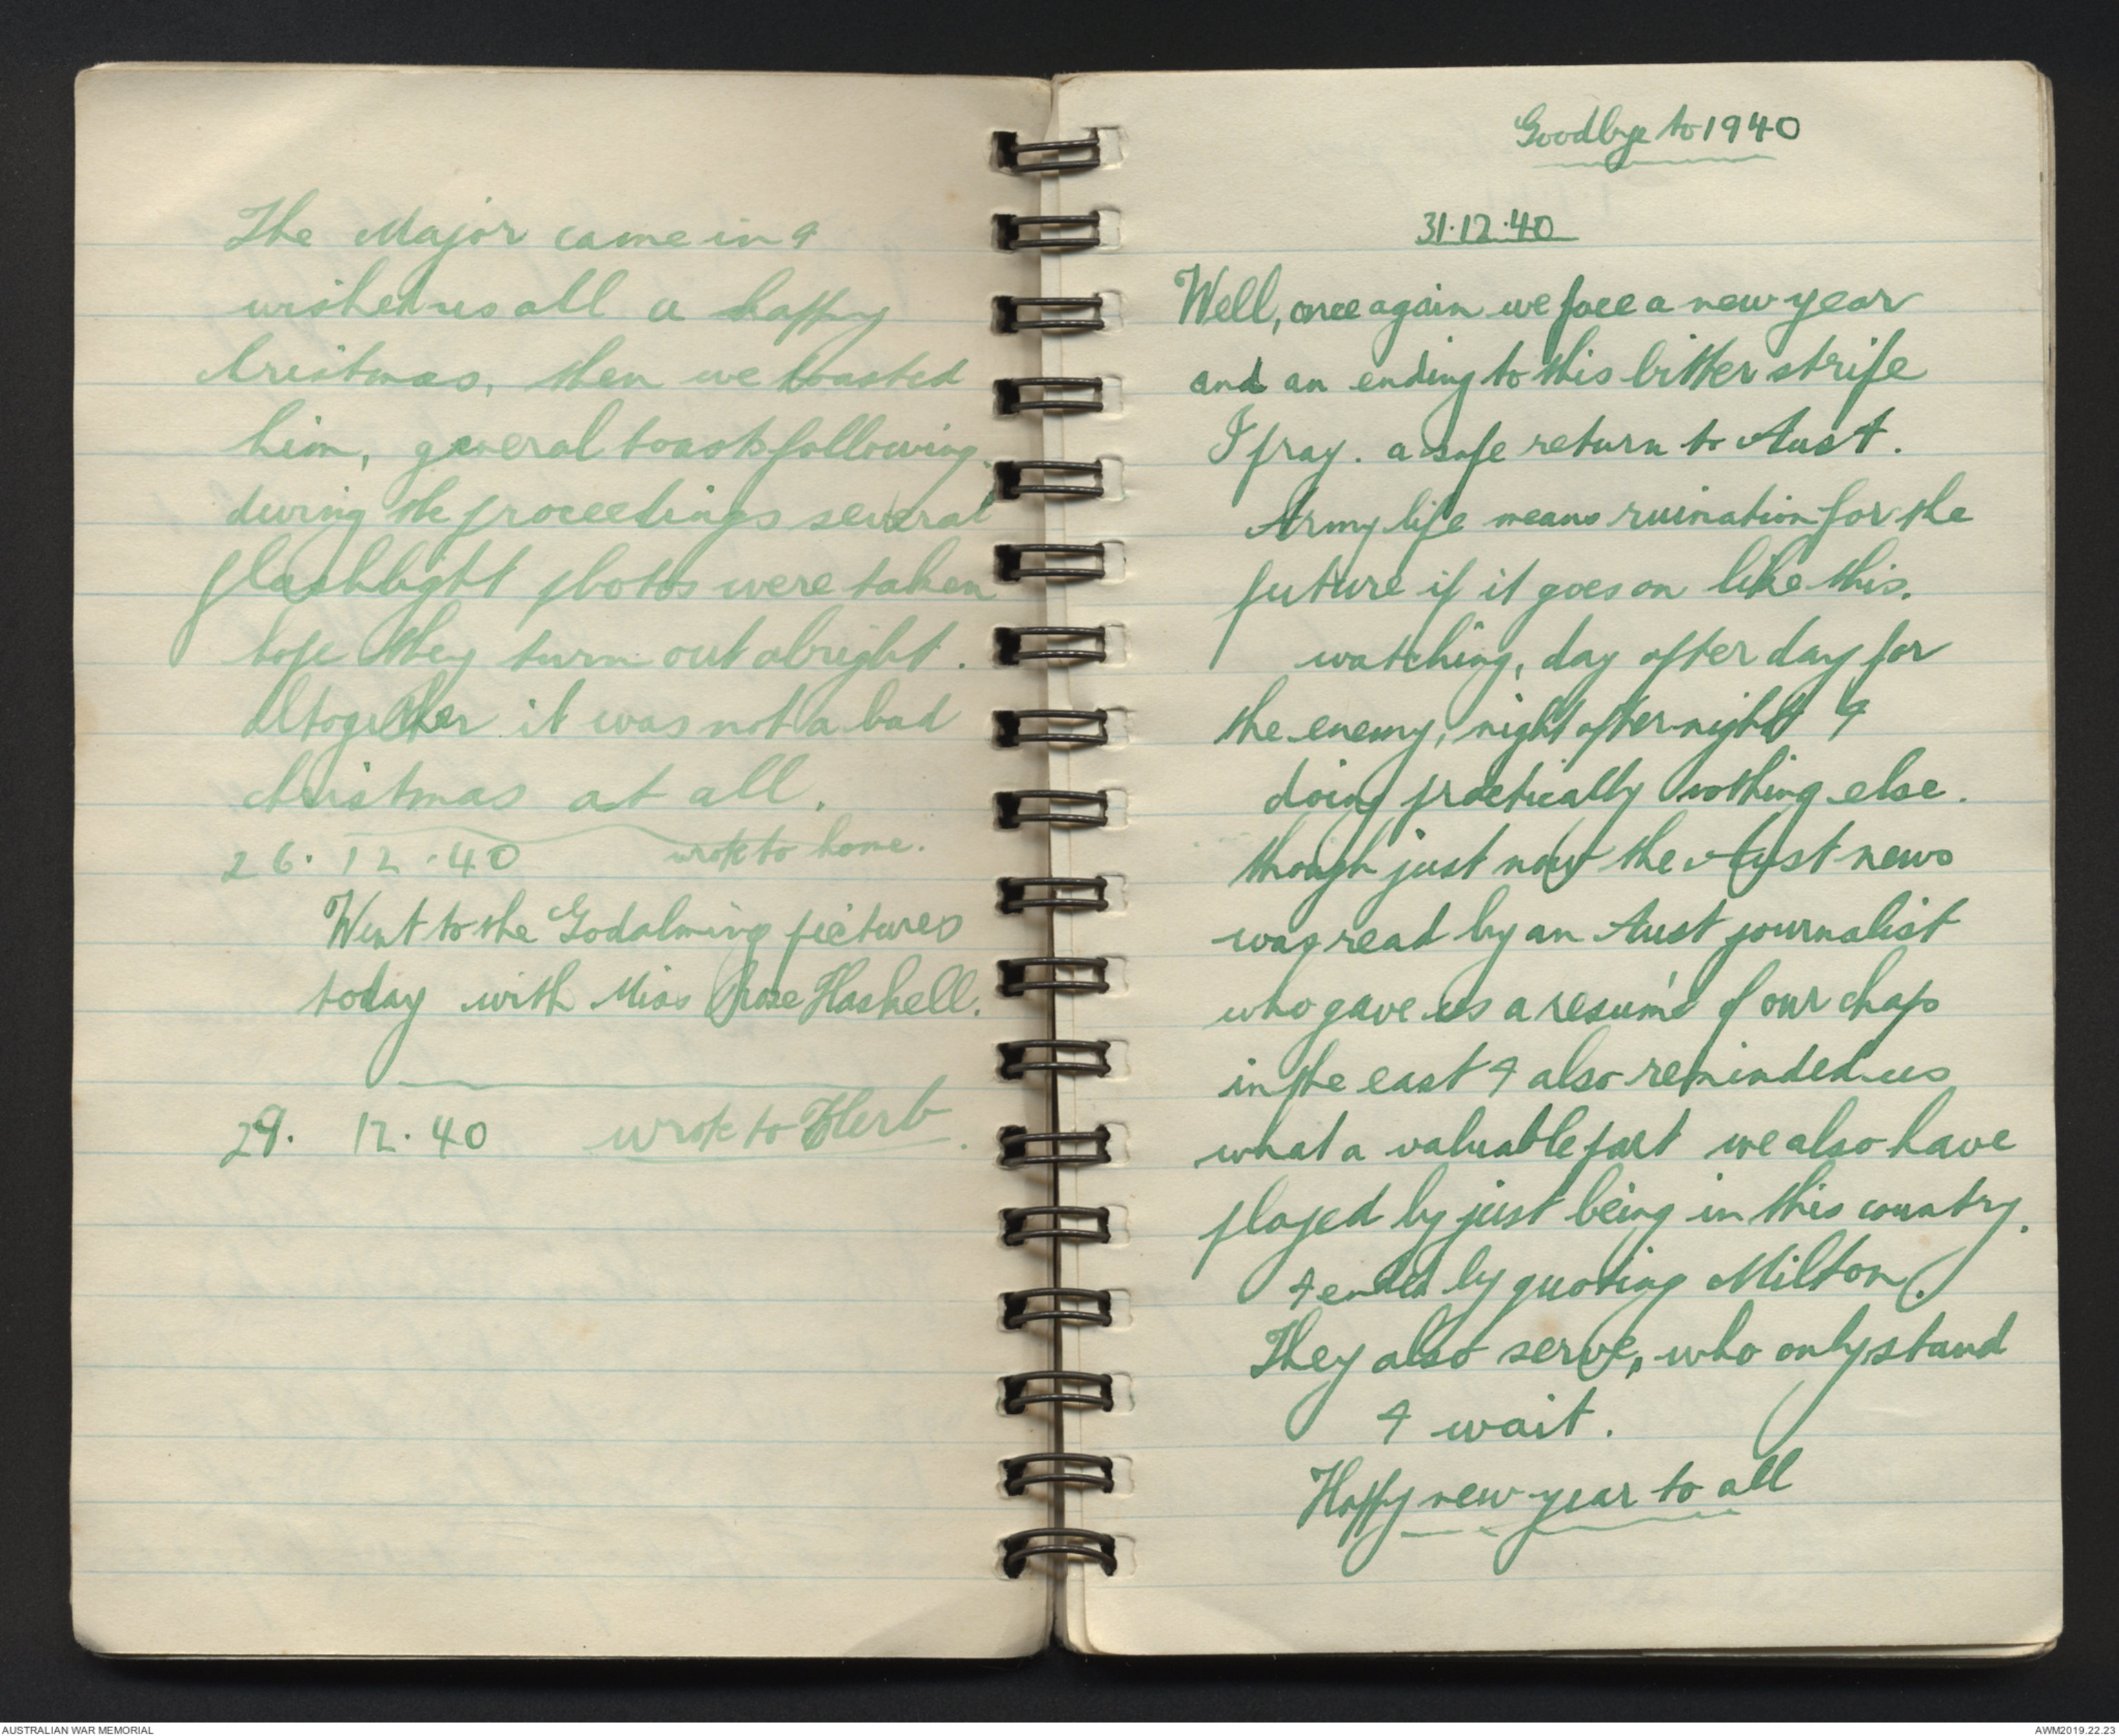 The Major came in &
wished us all a happy
Christmas, then we toasted
him, general toasts following.
during the proceedings several
flashlight photos were taken
hope they turn out alright.
altogether it was not a bad
christmas at all.
26.12.40 wrote to home.
Went to the Godalming pictures
today with Miss Haskell.
29. 12.40 wrote to Herb.
Goodbye to 1940
31.12.40
Well, once again we face a new year
and an ending to this bitter strife
I pray. a safe return to Aust.
Army life means ruination for the
future if it goes on like this.
watching, day after day for
the enemy, night after night &
doing practically nothing else.
though just now the Aust news
was read by an Aust journalist
who gave us a resumé of our chaps
in the east & also reminded us
what a valuable part we also have
played by just being in this country.
& ended by quoting Milton.
They also serve, who only stand
& wait.
Happy new year to all
AUSTRALIAN WAR MEMORIAL
AWM2019.22.23